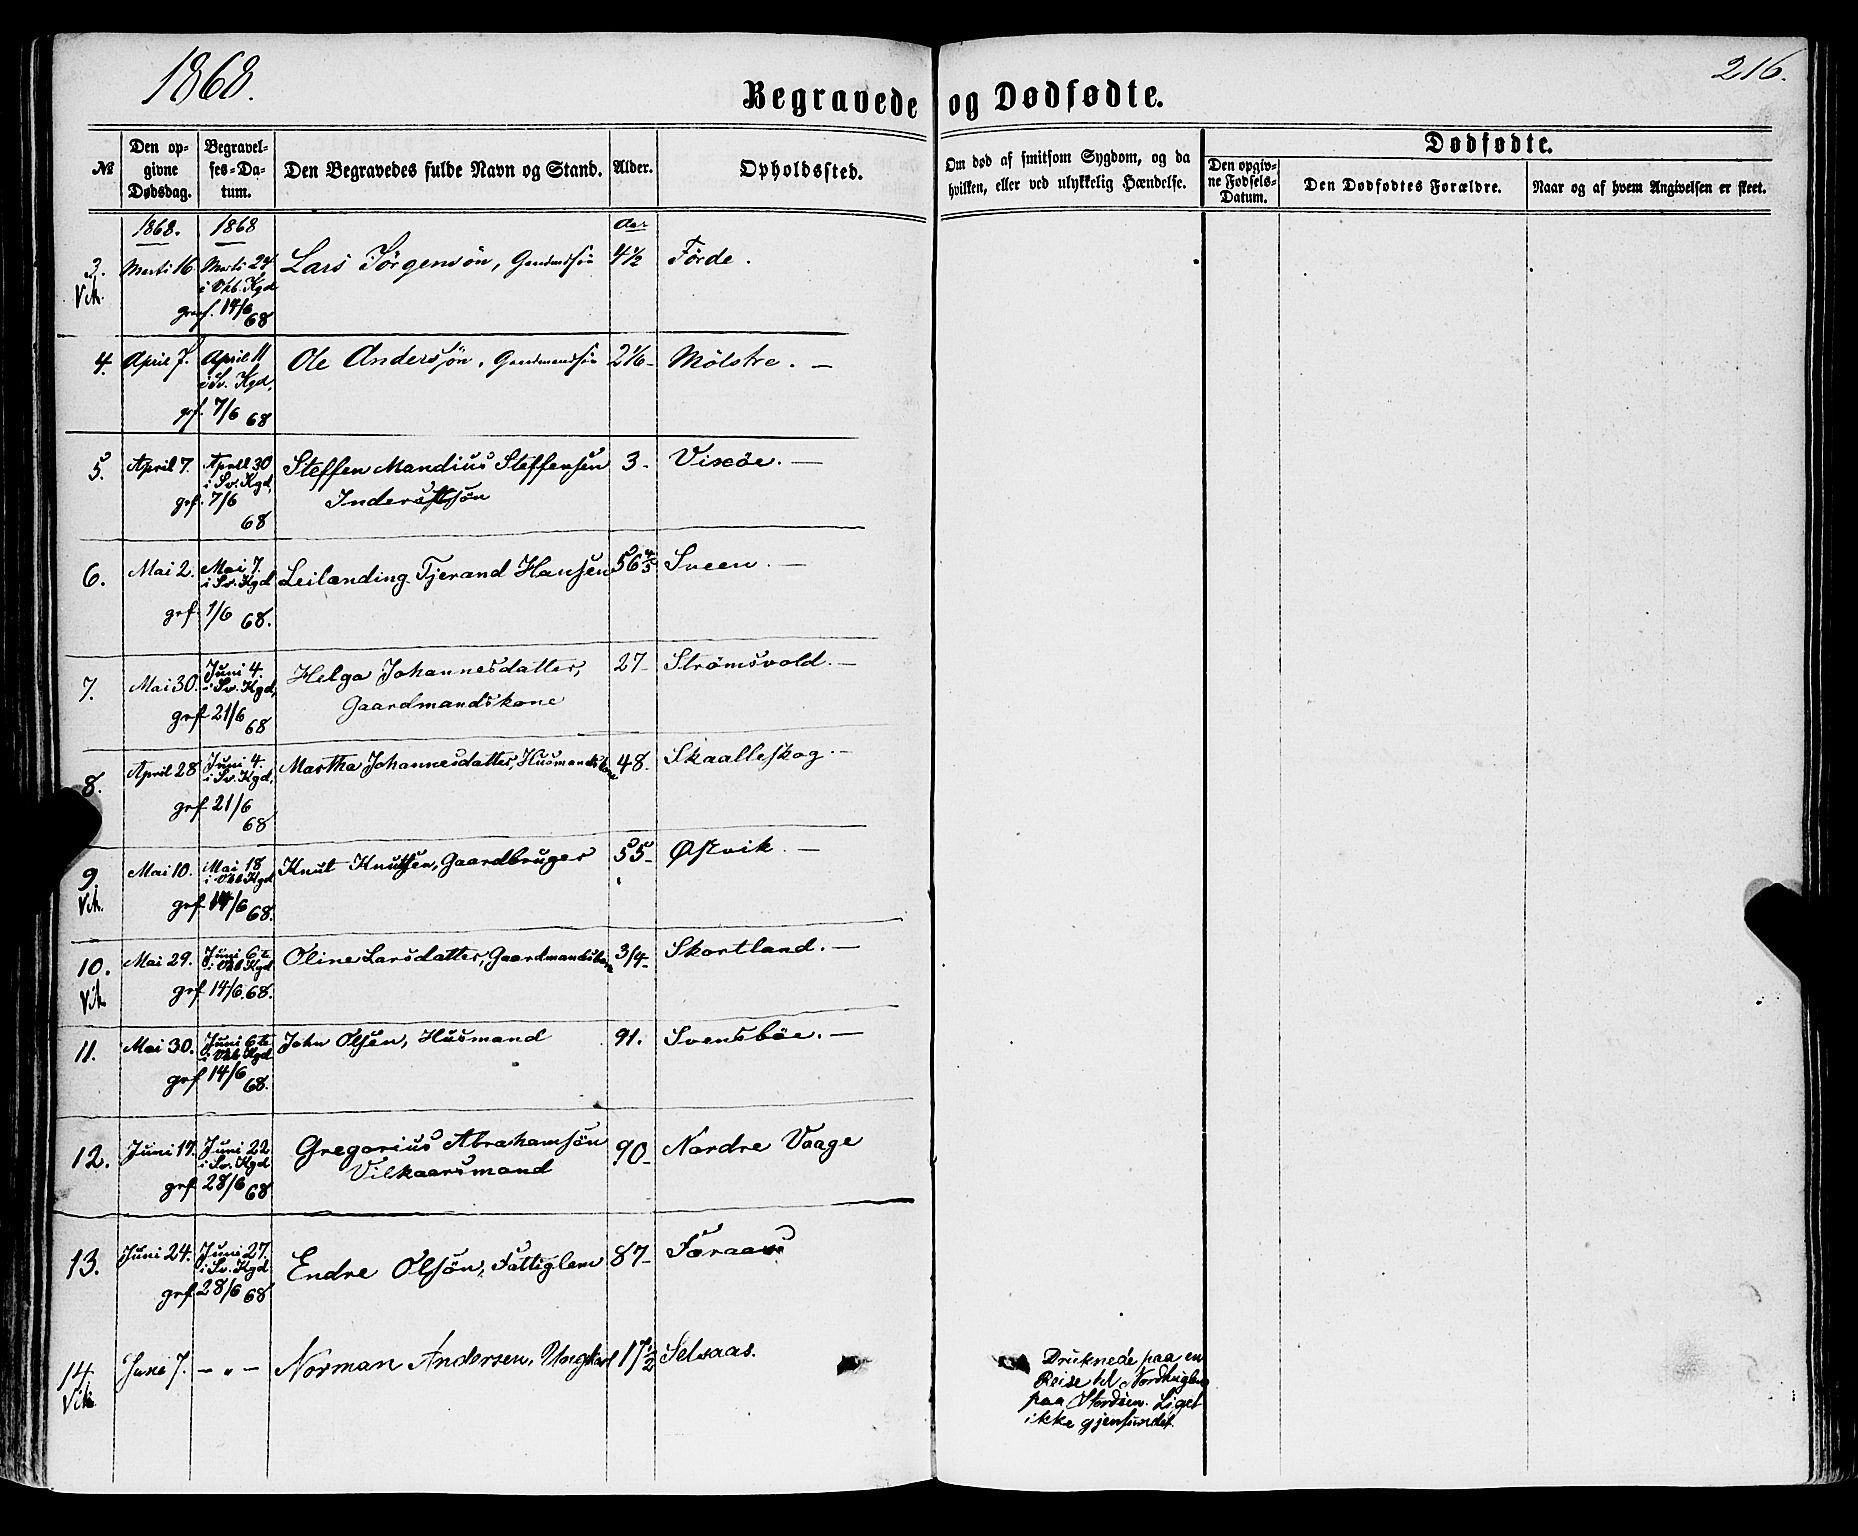 1868.
216.
Begravede og Dødfødte.
№
Den op-
givne
Dødsdag.
Begravel-
ses-Da-
tum.
Den Begravedes fulde Navn og Stand.
Alder.
Opholdssted.
Om død af smitsom Sygdom, og da
hvilken, eller ved ulykkelig Hændelse.
Dødfødte.
Den opgiv-
ne Fødsels-
Datum.
Den Dødfødtes Forældre.
Naar og af hvem Angivelsen er skeet.
1868. 1868 Aar
3. Marti 16 Marti 24 Lars Jørgensøn, Gaardmdssøn 4½ Førde.
Vik. i Vkb. Kgd
grf. 14/6 68
4. April 7. April 11 Ole Anderssøn, Gaardmandssøn 2 1/6 - Mölstre. —
i Sv. Kgd,
grf. 7/6 68
5. April 7. April 30 Steffen Mandius Steffensen 3 - Vixöe. —
i Sv. Kgd, Inderstsøn
grf. 7/6
68
6. Mai 2. Mai 7. Leilænding Tjerand Hansen 56 Sveen. —
i Sv. Kgd
grf. 1/6 68.
7. Mai 30. Juni 4. Helga Johannesdatter, 27 - Strömsvold. —
i Sv. Kgd, Gaardmandskone
grf 21/6 68
8. April 28 Juni 4. Martha Johannesdatter, Husmandskone 48. Skaalleskog. —
i Sv. Kgd,
grf 21/6
68
9. Mai 10. Mai 18 Knut Knutsen, Gaardbruger 55 - Østvik. —
Vik. i Vkb Kgd
grf 14/6 68.
10. Mai 29. Juni 6te Oline Larsdatter, 3/4 - Skortland. —
Vik i Vkb Kgd
grf 14/6.68.
11. Mai 30. Juni 6te John Olsen, Husmand 91. Svensböe. —
i Vkb Kgd
grf 14/6 68.
12. Juni 17. Juni 22 Gregorius Abrahamsøn 90 - Nordre Vaage
i Sv. Kgd Vilkaarsmand
grf 28/6 68
13. Juni 24. Juni 27. Endre Olsøn, Fattiglem 87 -
i Sv. Kgd
grf 28/6 68
14. June 7. — " — Norman Andersen, Ungkarl 17½ Selsaas.
Vik
Druknede paa en
Reise til
paa Liget
ikke gjenfundet.